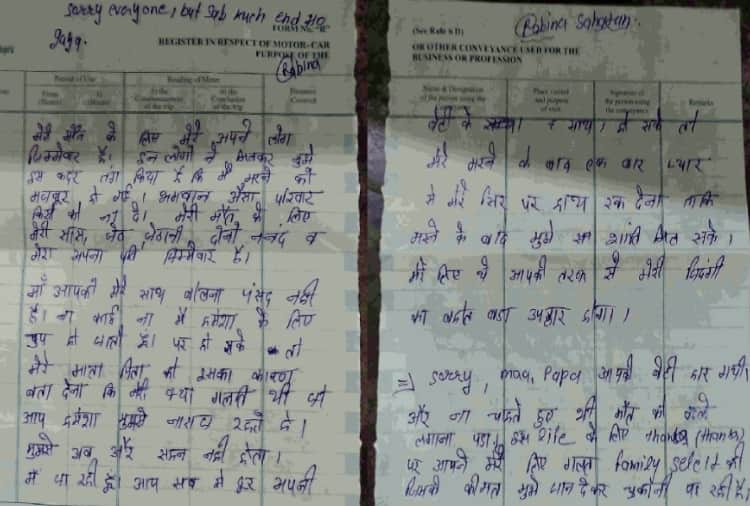 sorry everyone, but sab much end no
गया.
FORM No. "B"
REGISTER IN RESPECT OF MOTOR-CAR
PURPOSE OF THE
Rubina
Period of Use
Reading of Meter
From
(Hours)
In the
Commencement
of the trip
In the
Conclusion
of the trip
Distance
Covered
मेरी मौत के लिए मेरे अपने लोग
जिम्मेवार है। इन लोगों ने मिलकर मुझे
इस कदर तंग किया है कि मैं मरने को
मजबूर हो गई। भगवान ऐसा परिवार
किसी को ना दे। मेरी मौत के लिए
मेरी सास, जेठ, जेठानी, दोनों ननद व
मेरा अपना पति जिम्मेवार है।
माँ आपको मेरे साथ बोलना पंसद नही
है। ना कोई ना मैं हमेशा के लिए
चुप हो जाती हूँ। पर हो सके तो
मेरे माता पिता को इसका कारण
बता देना कि मेरी क्या गलती थी जो
आप हमेशा मुझसे नाराज रहते थे।
मुझसे अब और सहन नही होता।
मैं जा रही हूं। आप सब से दूर अपनी
(See Rule 6 D)
OR OTHER CONVEYANCE USED FOR THE
BUSINESS OR PROFESSION
Name & Designation
of the person using the
Place visited
and purpose
of visit
Signature of
the person using
the conveyance
Remarks
बेटी के साथ। हो सके तो
मेरे मरने के बाद एक बार प्यार
से मेरे सिर पर हाथ रख देना ताकि
मरने के बाद मुझे शांति मिल सके।
मेरे लिए ये आपकी तरफ से मेरी जिंदगी
का बहुत बड़ा उपहार होगा।
=) sorry, maa, Papa आपकी बेटी हार गयी।
और ना चाहते हुए भी मौत को गले
लगाना पड़ा। इस life के लिए thanks (thanks)
पर आपने मेरे लिए गलत family select की
जिसकी कीमत मुझे जान देकर चुकानी पड़ रही है।